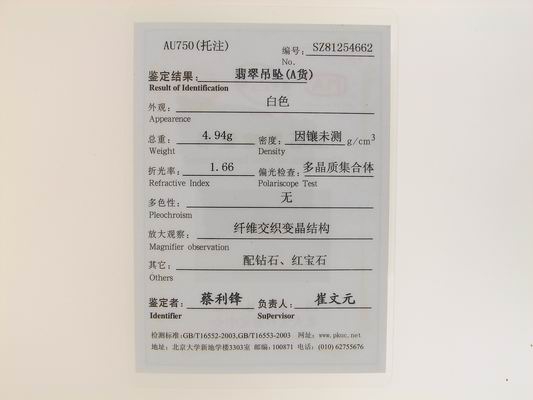 AU750(托注)
编号: SZ81254662
No.
鉴定结果: 翡翠吊坠(A货)
Result of Identification
外观: 白色
Appearence
总重: 4.94g 密度: 因镶未测 g/cm³
Weight Density
折光率: 1.66 偏光检查: 多晶质集合体
Refractive Index Polariscope Test
多色性: 无
Pleochroism
放大观察: 纤维交织变晶结构
Magnifier observation
其它: 配钻石、红宝石
Others
鉴定者: 蔡利锋 负责人: 崔文元
Identifier Supervisor
检测标准:GB/T16552-2003,GB/T16553-2003 网址: www.pkuc.net
地址: 北京大学新地学楼3303室 邮编:100871 电话: (010) 62755676